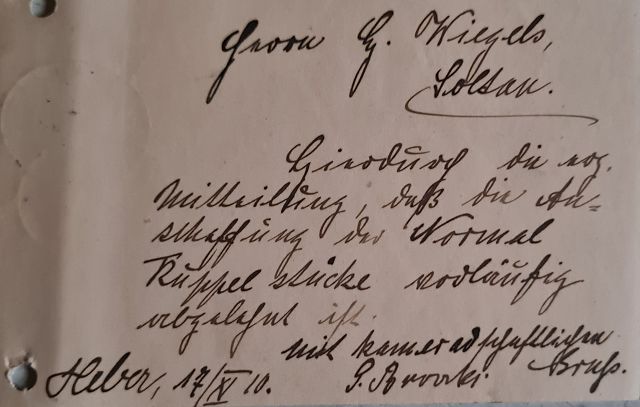 Herrn G. Wiegels,
Soltau.
Hierdurch die erg.
Mitteilung, daß die An=
schaffung der Normal
Kuppelstücke vorläufig
abgelehnt ist.
mit kameradschaftlichen
Heber, 17/XI 10. Gruß.